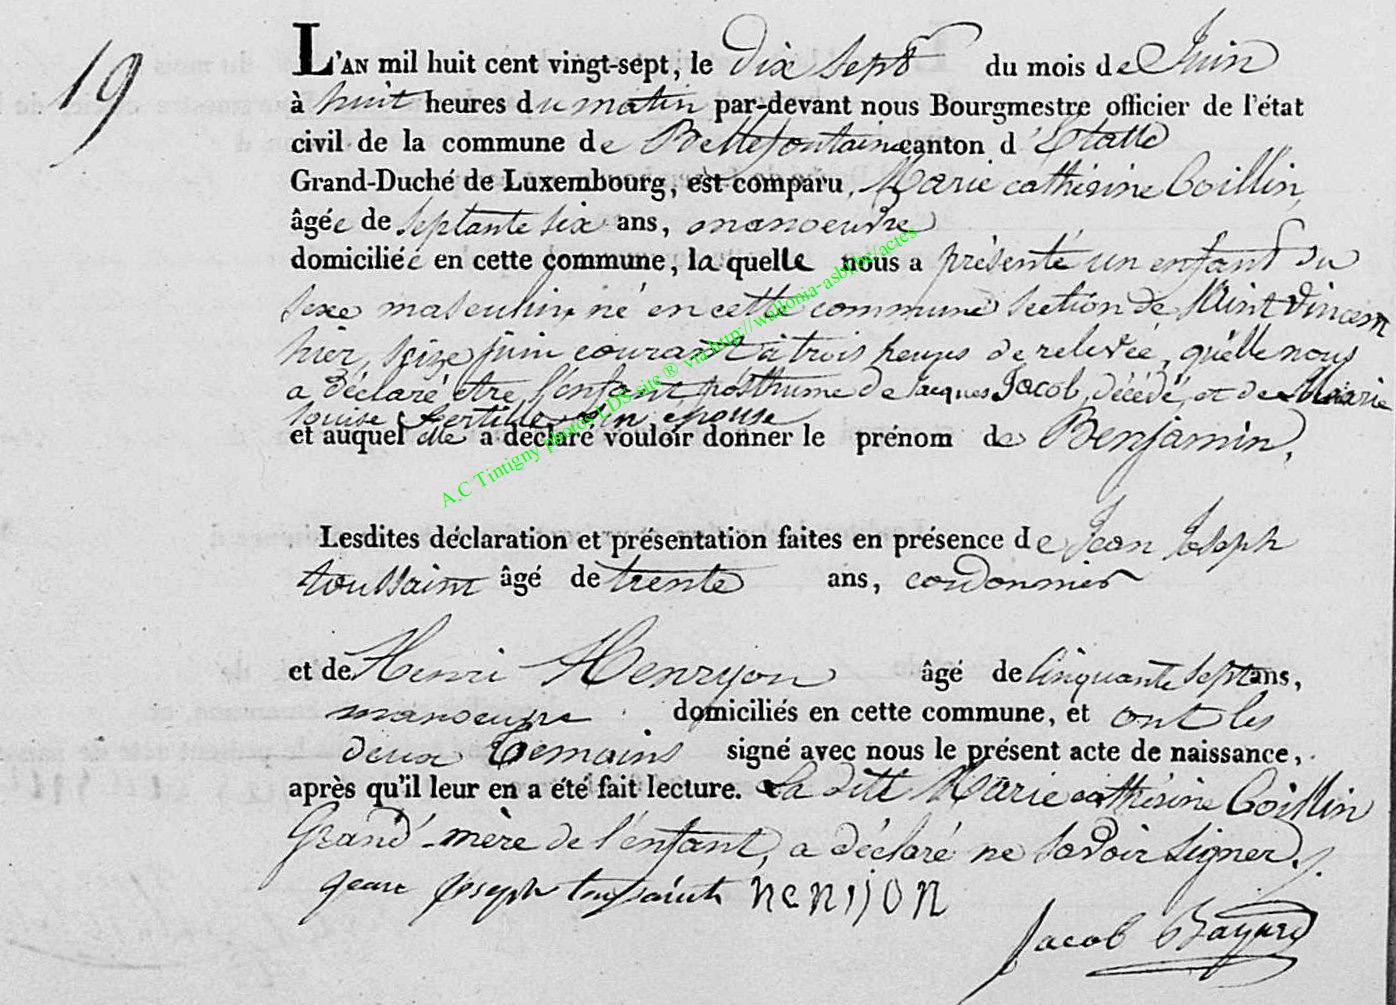 19
L'AN mil huit cent vingt-sept, le dix sept du mois de Juin
à huit heures du matin par-devant nous Bourgmestre officier de l'état
civil de la commune de Bellefontaine canton d'Etalle
Grand-Duché de Luxembourg, est comparu, Marie cathérine Goillin,
âgée de septante six ans, manoeuvre
domiciliée en cette commune, la quelle nous a présenté un enfant du
sexe masculin, né en cette commune section de Saint Vincent
hier, seize juin courant à trois heures de relevée, qu'elle nous
a déclaré être l'enfant posthume de Jacques Jacob, décédé, et de Marie
louise son epouse
et auquel elle a déclaré vouloir donner le prénom de Benjamin.
Lesdites déclaration et présentation faites en présence de Jean Joseph
toussaint âgé de trente ans, cordonnier
et de Henri Henryon âgé de cinquante sept ans,
manoeuvre domiciliés en cette commune, et ont les
deux temains signé avec nous le présent acte de naissance,
après qu'il leur en a été fait lecture. La dite Marie cathérine Goillin
Grand-mère de l'enfant, a déclaré ne savoir signer.
jean joseph toussaint henrijon
Jacob
A.C Tintigny photos LDS site ® via http://wallonia-asbl.be/actes